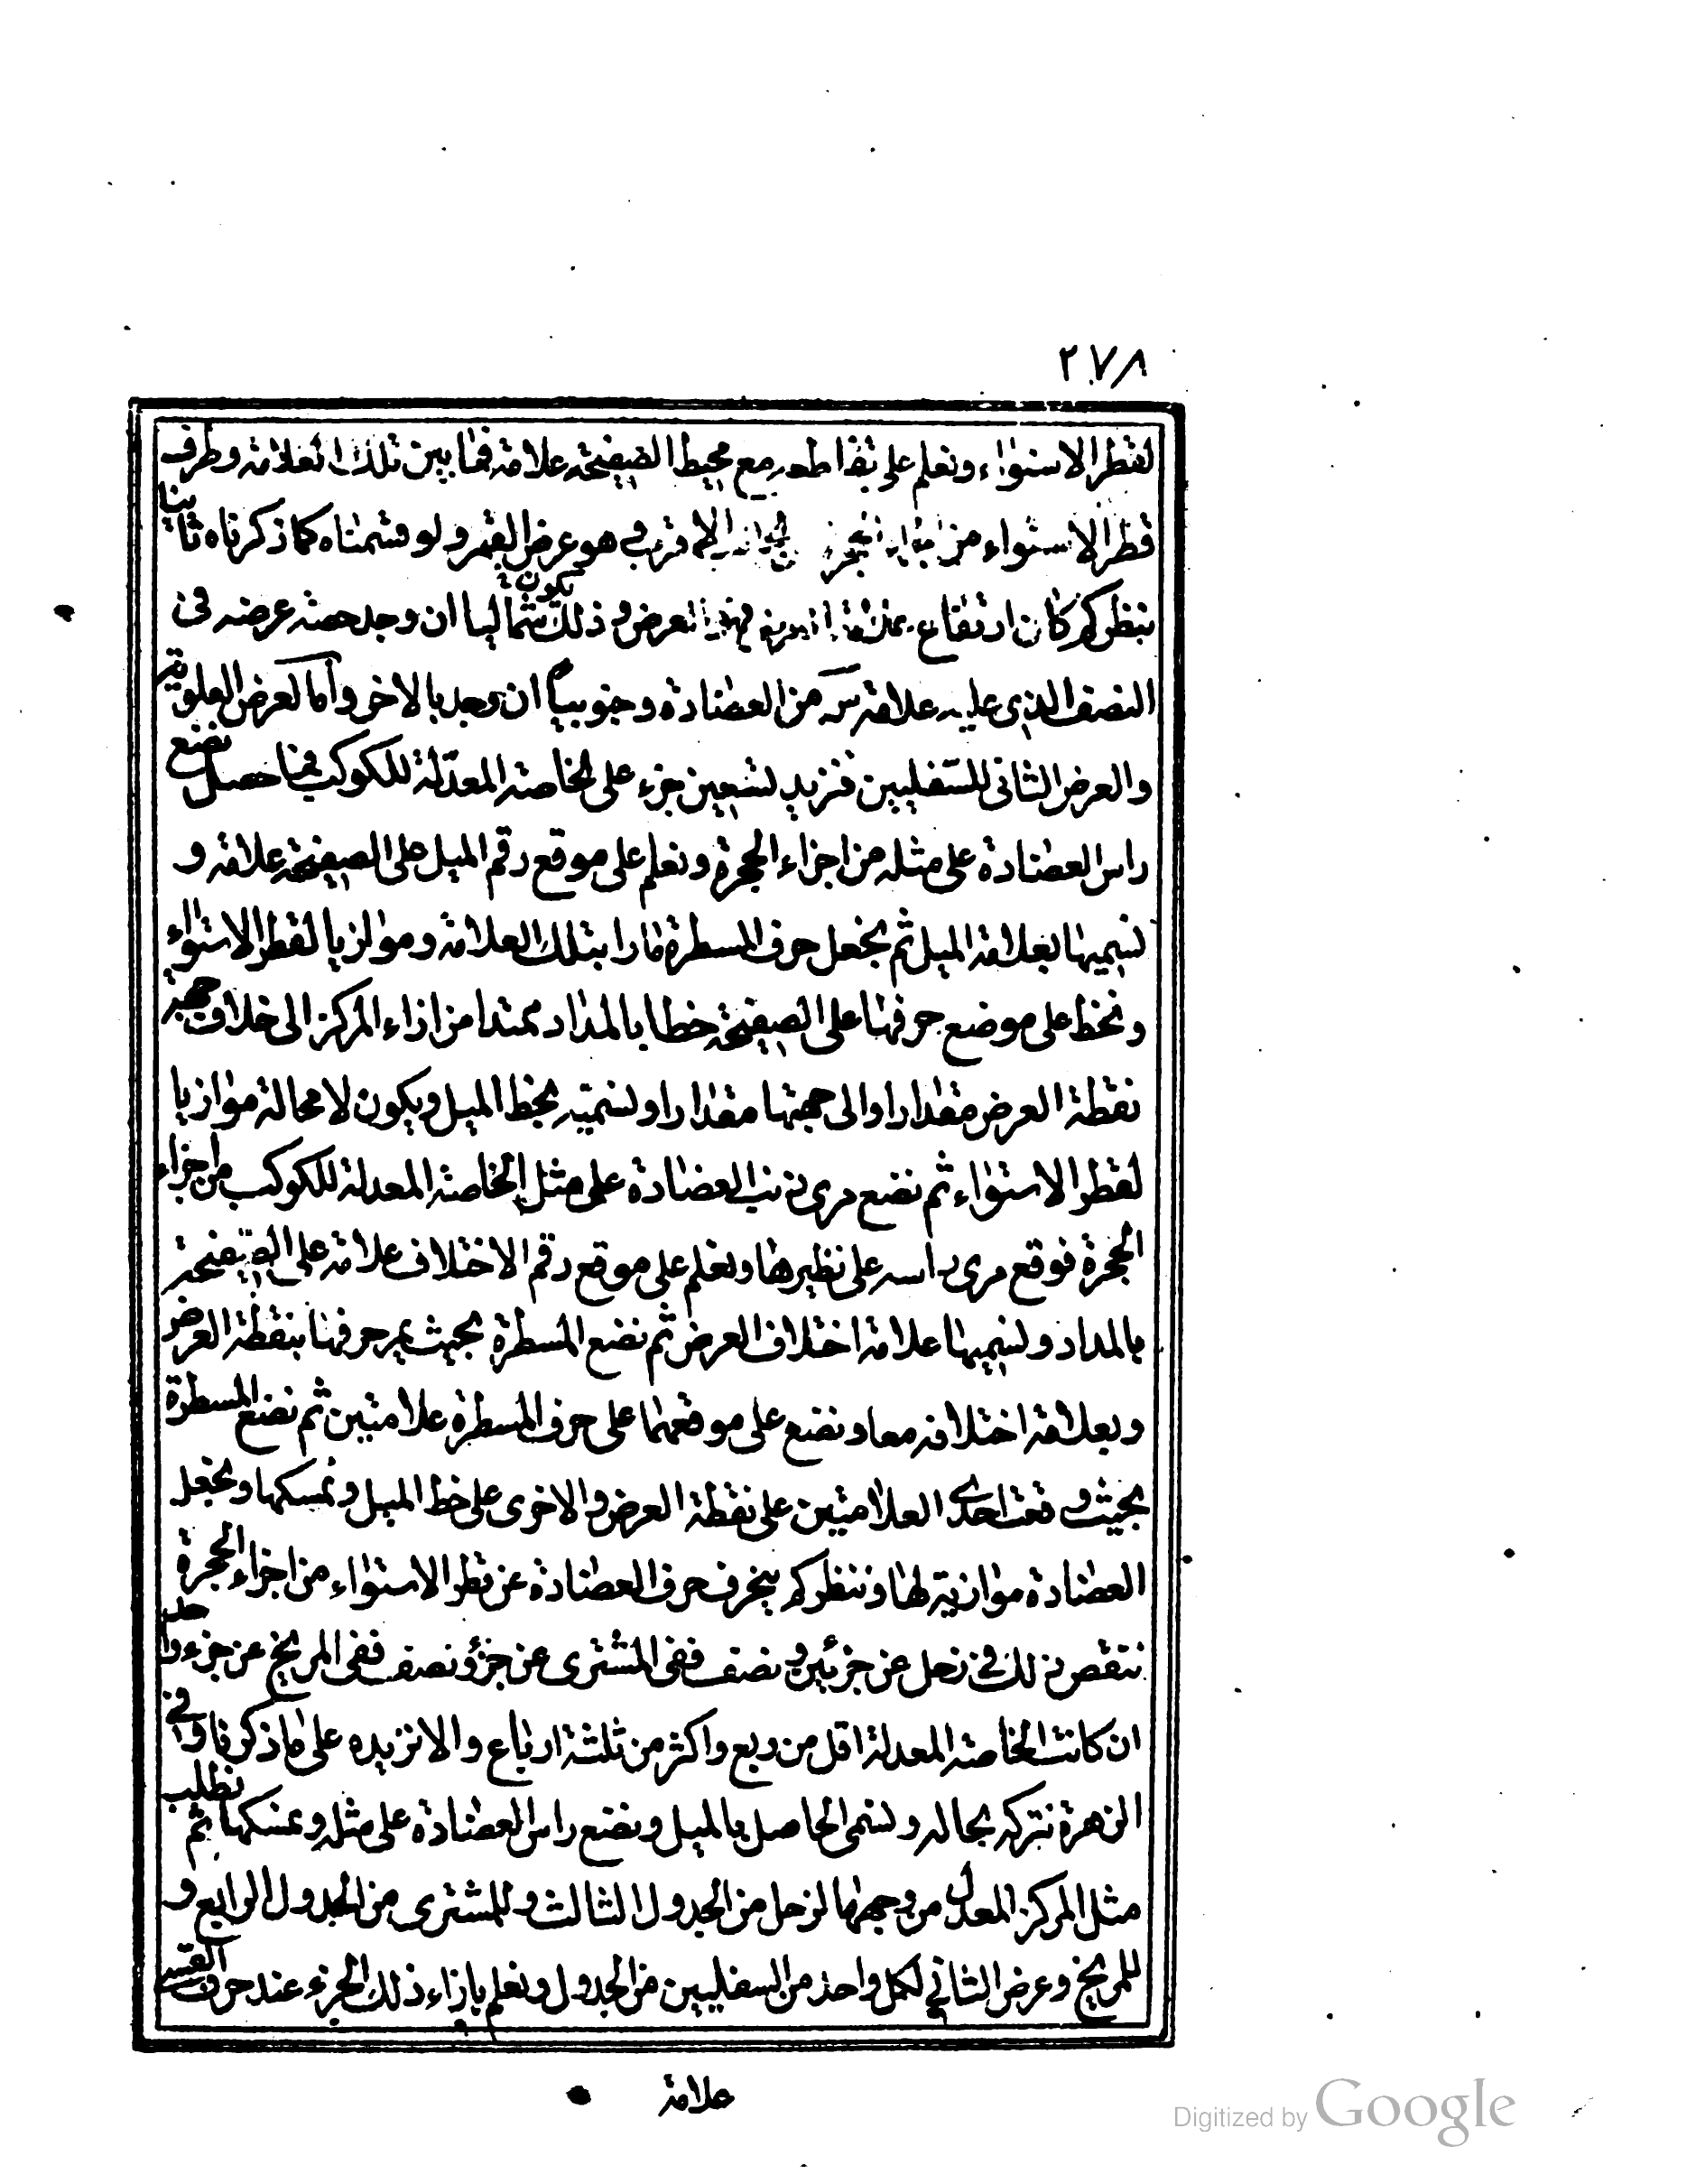 ٢٧٨
لقطر الاستواء ونعلم على تقاطعه مع محيط الصفيحة علامة فما بين تلك العلامة وطرف
قطر الاستواء من الاقرب هو عرض القمر ولو قسمناه كما ذكرناه ثانيا
ننظر كم كان ارتفاع العرض وذلك يكون شماليا ان وجد حصة عرضه في
النصف الذي عليه علامة سه من العضادة وجنوبيا ان وجد بالاخر واما لعرض العلوية
والعرض الثاني للسفليين فنزيد تسعين جزء على الخاصة المعدلة للكوكب فما حصل نضع
راس العضادة على مثله من اجزاء الحجرة ونعلم على موقع رقم الميل على الصفيحة علامة و
نسميها بعلامة الميل ثم نجعل حرف المسطرة مارا بتلك العلامة وموازيا لقطر الاستواء
ونخط على موضع حرفها على الصفيحة خطا بالمداد ممتدا من ازاء المركز الى خلاف جهة
نقطة العرض مقدارا والى جهتها مقدارا ونسميه بخط الميل ويكون لا محالة موازيا
لقطر الاستواء ثم نضع مرى ذنب العضادة على مثل الخاصة المعدلة للكوكب من اجزاء
الحجرة فوقع مرى راسه على نظيرها ونعلم على موقع رقم الاختلاف علامة على الصفيحة
بالمداد ونسميها علامة اختلاف العرض ثم نضع المسطرة بحيث يمر حرفها بنقطة العرض
وبعلامة اختلافه معا ونضع على موقعهما على حرف المسطرة علامتين ثم نضع المسطرة
بحيث وقعت احدى العلامتين على نقطة العرض والاخرى على خط الميل ونمسكها ونجعل
العضادة موازية لها وننظر كم ينحرف حرف العضادة عن قطر الاستواء من اجزاء الحجرة
ننقص ذلك في زحل عن جزئين ونصف ففي المشترى عن جزؤ ونصف ففي المريخ عن جزء واحد
ان كانت الخاصة المعدلة اقل من ربع واكثر من ثلثة ارباع والا نزيده على ما ذكرنا وفي
الزهرة نتركه بحاله ونسمى الحاصل بالميل ونضع راس العضادة على مثله ونمسكها ثم نطلب
مثل المركز المعدل من وجهها لزحل من الجدول الثالث وللمشترى من الجدول الرابع و
للمريخ وعرض الثاني لكل واحد من السفليين من الجدول ونعلم بازاء ذلك الجزء عند حرف القسى
علامة
Digitized by Google